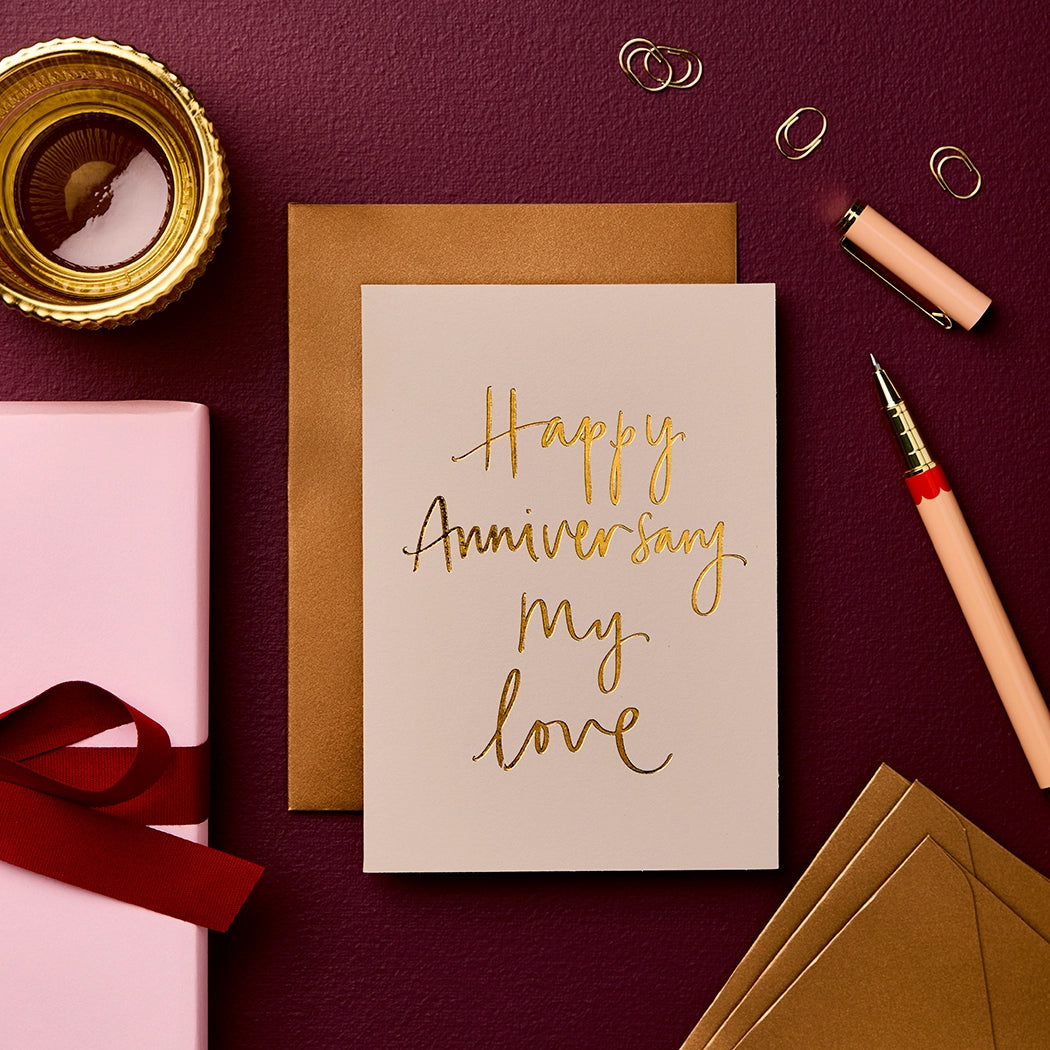 Happy
Anniversary
My
love